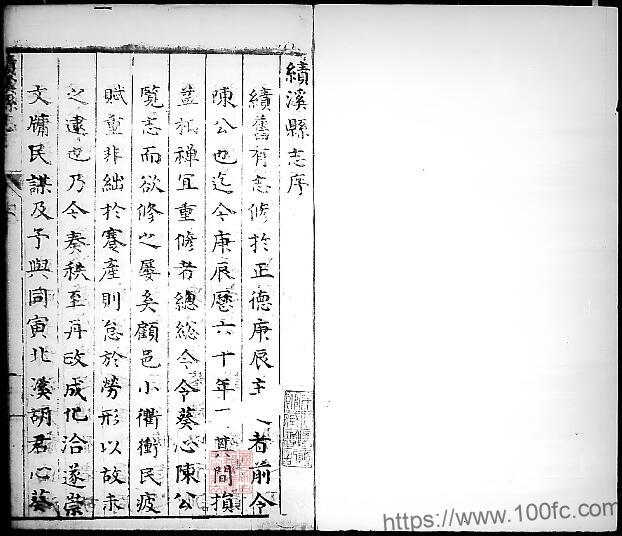 績溪縣志序
績舊有志修於正德庚辰主 者前令
陳公也迄今庚辰歷六十年 其間損
益沿禪宜重修者總總令令葵心陳公
覧志而欲修之屡矣顧邑小衢衝民疲
賦重非絀於蹇產則怠於勞形以故未
之逮也乃令奏秩至再政成化洽遂崇
文牖民謀及予與同寅北溪胡君心葵
績溪縣志
https://www.100fc.com